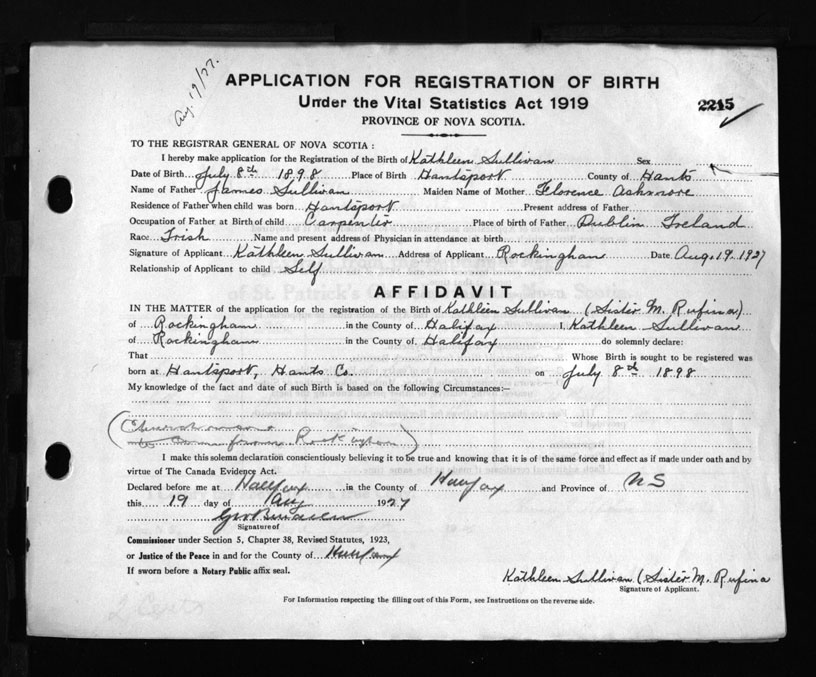 Aug. 19/27.
APPLICATION FOR REGISTRATION OF BIRTH
Under the Vital Statistics Act 1919
2215
PROVINCE OF NOVA SCOTIA.
TO THE REGISTRAR GENERAL OF NOVA SCOTIA:
I hereby make application for the Registration of the Birth of Kathleen Sullivan Sex
Date of Birth July 8th 1898 Place of Birth Hantsport County of Hants
Name of Father James Sullivan Maiden Name of Mother Florence Ashmore
Residence of Father when child was born Hantsport Present address of Father
Occupation of Father at Birth of child Carpenter Place of birth of Father Dublin Ireland
Race Irish Name and present address of Physician in attendance at birth
Signature of Applicant Kathleen Sullivan Address of Applicant Rockingham Date Aug. 19. 1927
Relationship of Applicant to child Self
AFFIDAVIT
IN THE MATTER of the application for the registration of the Birth of Kathleen Sullivan (Sister M. Rufina)
of Rockingham in the County of Halifax I, Kathleen Sullivan
of Rockingham in the County of Halifax do solemnly declare:
That Whose Birth is sought to be registered was
born at Hantsport, Hants Co. on July 8th 1898
My knowledge of the fact and date of such Birth is based on the following Circumstances:—
(Church
Rockingham)
I make this solemn declaration conscientiously believing it to be true and knowing that it is of the same force and effect as if made under oath and by
virtue of The Canada Evidence Act.
Declared before me at Halifax in the County of Halifax and Province of NS
this 19 day of Aug 1927
Signature of
Commissioner under Section 5, Chapter 38, Revised Statutes, 1923,
or Justice of the Peace in and for the County of Halifax
If sworn before a Notary Public affix seal.
Kathleen Sullivan (Sister M. Rufina
Signature of Applicant.
For Information respecting the filling out of this Form, see Instructions on the reverse side.
2 Cents